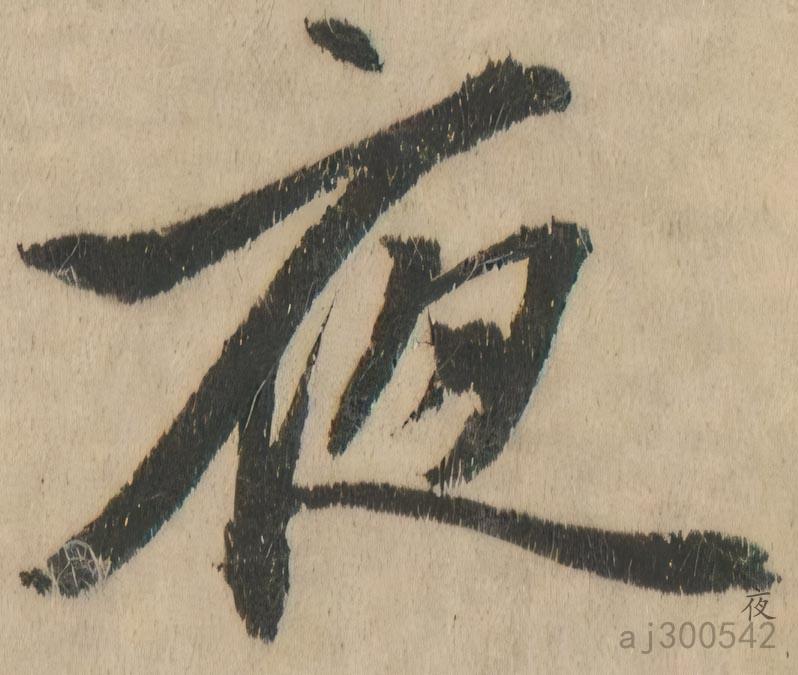 夜
夜
aj300542